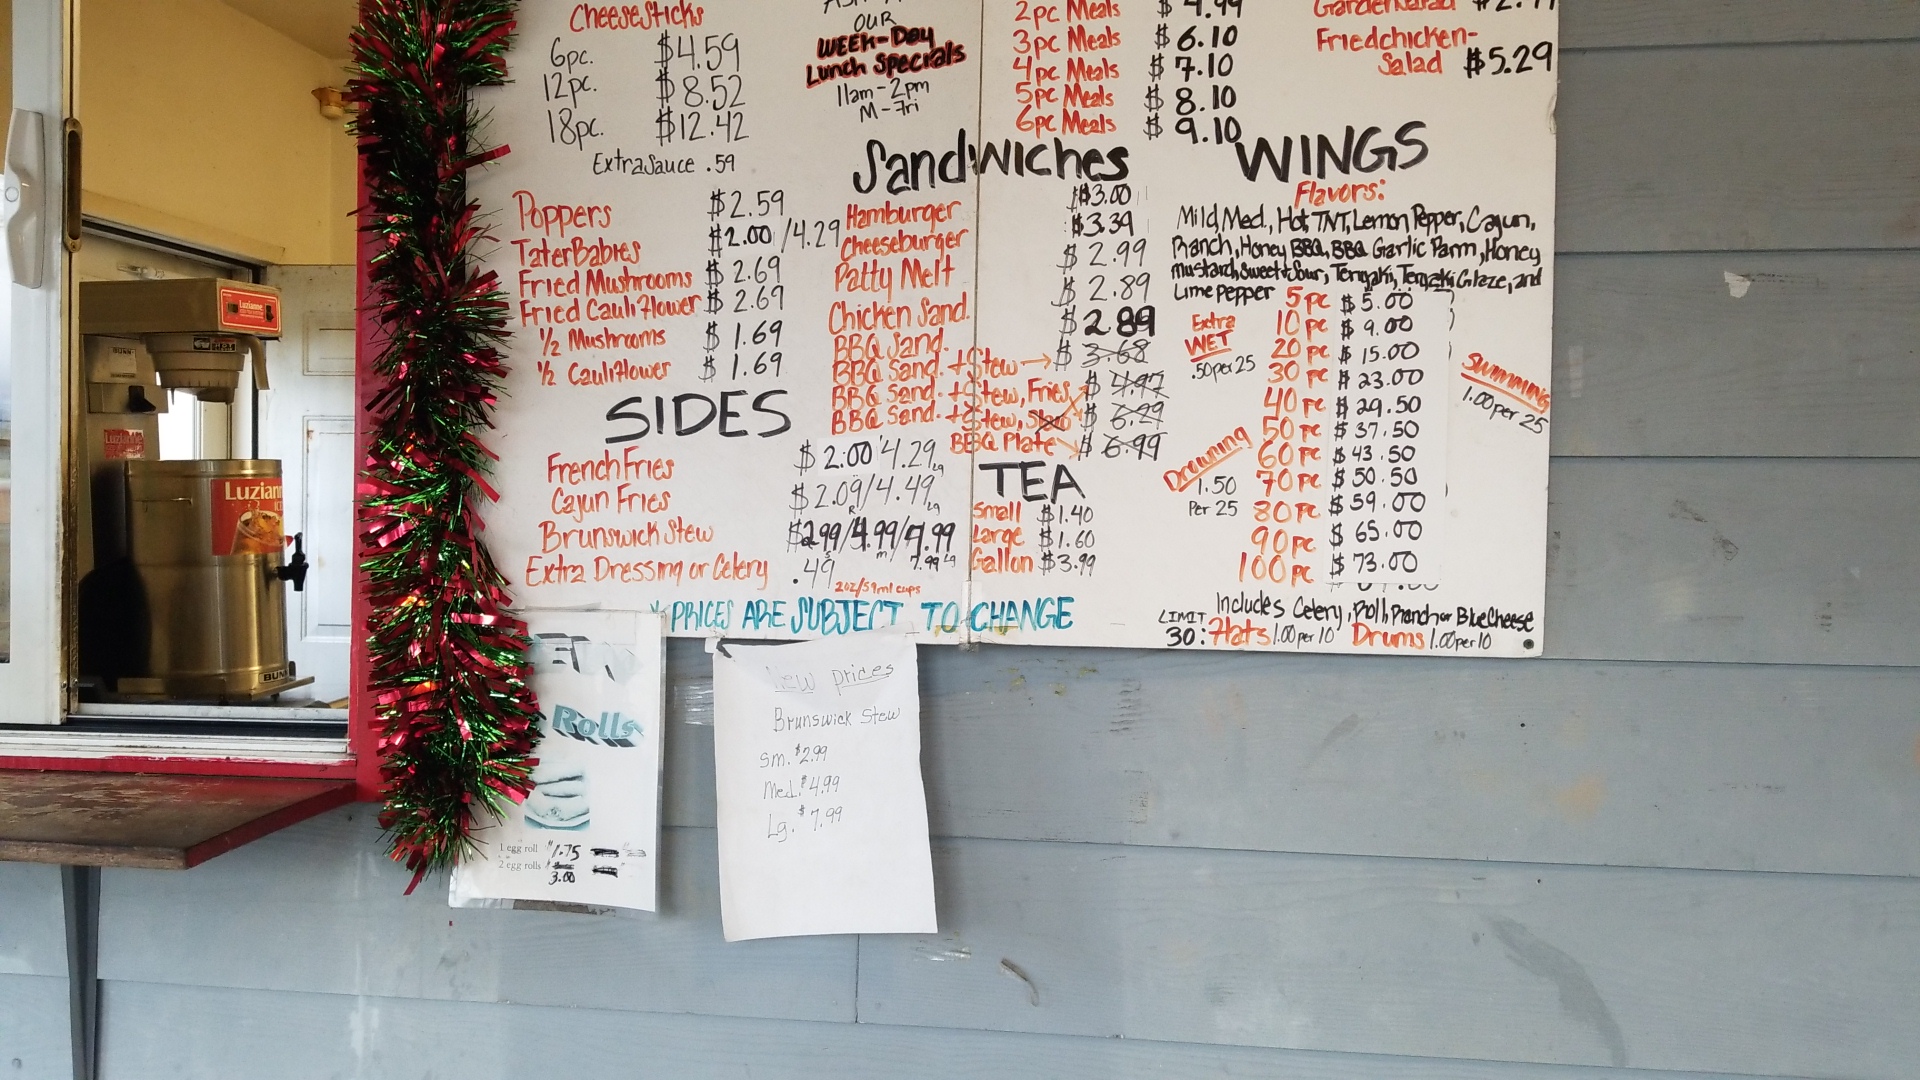 CheeseSticks
6pc. $4.59
12pc. $8.52
18pc. $12.42
Extra Sauce .59
Poppers $2.59
TaterBabies $2.00/4.29
Fried Mushrooms $2.69
Fried Cauliflower $2.69
1/2 Mushrooms $1.69
1/2 Cauliflower $1.69
SIDES
French Fries $2.00/4.29 Lg
Cajun Fries $2.09/4.49 R Lg
Brunswick Stew $2.99/4.99/7.99
S m 7.99 Lg
Extra Dressing or Celery .49
2oz/59ml cups
OUR
WEEK-Day
Lunch Specials
11am-2pm
M-Fri
2pc Meals $4.99
3pc Meals $6.10
4pc Meals $7.10
5pc Meals $8.10
6pc Meals $9.10
Garden Salad
Friedchicken-
Salad $5.29
Sandwiches
Hamburger $3.00
Cheeseburger $3.39
Patty Melt $2.99
Chicken Sand. $2.89
BBQ Sand. $2.89
BBQ Sand. + Stew $3.68
BBQ Sand. + Stew, Fries $4.97
BBQ Sand. + Stew, $6.29
BBQ Plate $6.99
TEA
Small $1.40
Large $1.60
Gallon $3.99
WINGS
Flavors:
Mild, Med., Hot, TNT, Lemon Pepper, Cajun,
Ranch, Honey BBQ, BBQ, Garlic Parm, Honey
mustard, Sweet+Sour, Teriyaki, Teriyaki Glaze, and
Lime pepper
5 pc $5.00
10 pc $9.00
20 pc $15.00
30 pc $23.00
40 pc $29.50
50 pc $37.50
60 pc $43.50
70 pc $50.50
80 pc $59.00
90 pc $65.00
100 pc $73.00
Extra
WET
.50 per 25
Drowning
1.50
Per 25
Swimming
1.00 per 25
Includes Celery, Roll, Ranch or Blue Cheese
LIMIT
30: Flats 1.00 per 10 Drums 1.00 per 10
PRICES ARE SUBJECT TO CHANGE
Rolls
1 egg roll $1.75
2 egg rolls $
3.00
New prices
Brunswick Stew
Sm. $2.99
Med. $4.99
Lg. $7.99
Luzianne
BUNN
Luzianne
Luzian
BUN